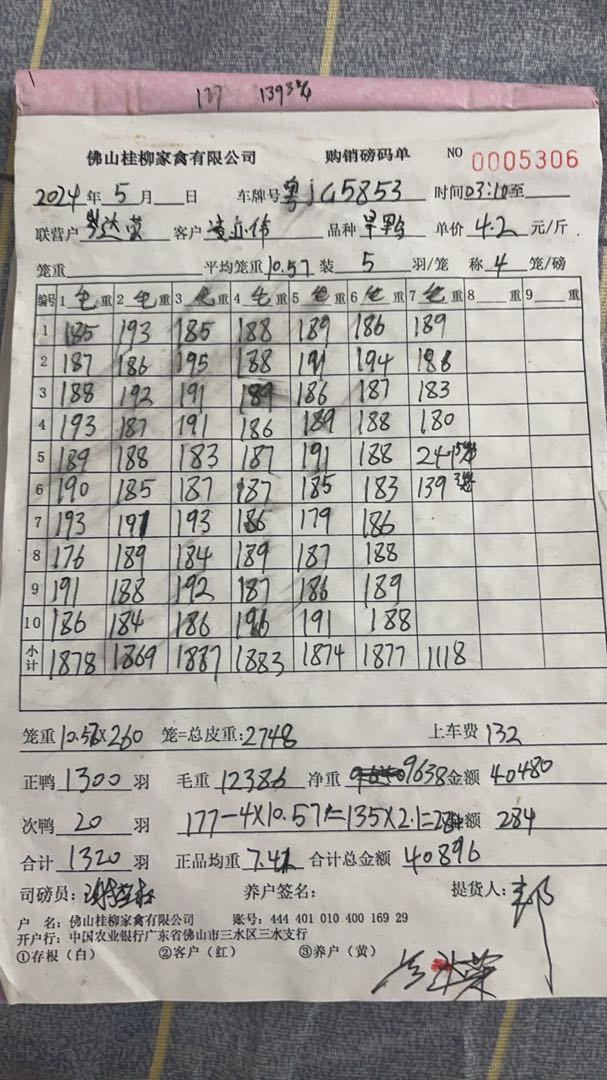 127 139 3
佛山桂柳家禽有限公司 购销磅码单 NO 0005306
2024年5月 日 车牌号粤JG5853 时间03:10至
联营户 达荣 客户 凌亦伟 品种 旱鸭 单价 4.2 元/斤
笼重 平均笼重10.57 装 5 羽/笼 称 4 笼/磅
编号 1 毛重 2 毛重 3 毛重 4 毛重 5 毛重 6 毛重 7 毛重 8 重 9 重
1 185 193 185 188 189 186 189
2 187 186 195 188 191 194 188
3 188 192 191 189 186 187 183
4 193 187 191 186 189 188 180
5 189 188 183 187 191 188 241 5笼
6 190 185 187 187 185 183 139 3笼
7 193 197 193 186 179 186
8 176 189 184 189 187 188
9 191 188 192 187 186 189
10 186 184 186 196 191 188
小计 1878 1869 1887 1883 1874 1877 1118
笼重 10.57X260 笼=总皮重:2748 上车费 132
正鸭 1300 羽 毛重 12386 净重 9638 金额 40480
次鸭 20 羽 177-4X10.57=135X2.1=284 额 284
合计 1320 羽 正品均重 7.41 合计总金额 40896
司磅员: 养户签名: 提货人:
户 名: 佛山桂柳家禽有限公司 账号: 444 401 010 400 169 29
开户行: 中国农业银行广东省佛山市三水区三水支行
①存根(白) ②客户(红) ③养户(黄)